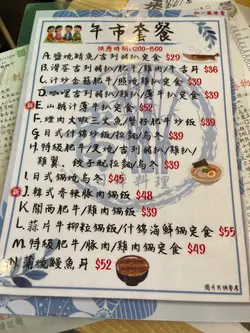 午市套餐
供應時間:1200-1500
A.鹽燒鯖魚/吉列豬扒定食 $29
B.滑蛋吉列豬扒/肥牛/雞肉/牛舌丼 $36
C.汁炒金菇肥牛/照燒雞扒定食 $39
D.咖哩吉列豬扒/雞扒/薄牛扒定食 $39
E.山賊汁薄牛扒定食 $52
F.煙肉大啦三文魚/蟹籽肥牛炒飯 $39
G.日式什錦炒飯/拉麵/烏冬 $39
H.日式叉燒/吉列豬扒/雞扒/
雞翼、餃子配拉麵/烏冬 $39
I.日式鍋燒烏冬 $45
J.韓式香辣豚肉鍋飯 $48
K.關西肥牛/雞肉鍋飯 $49
L.蒜片牛柳粒鍋飯/什錦海鮮鍋定食 $55
M.特級肥牛/豚肉/雞肉鍋定食 $49
N.蒲燒鰻魚丼 $52
圖片只供參考